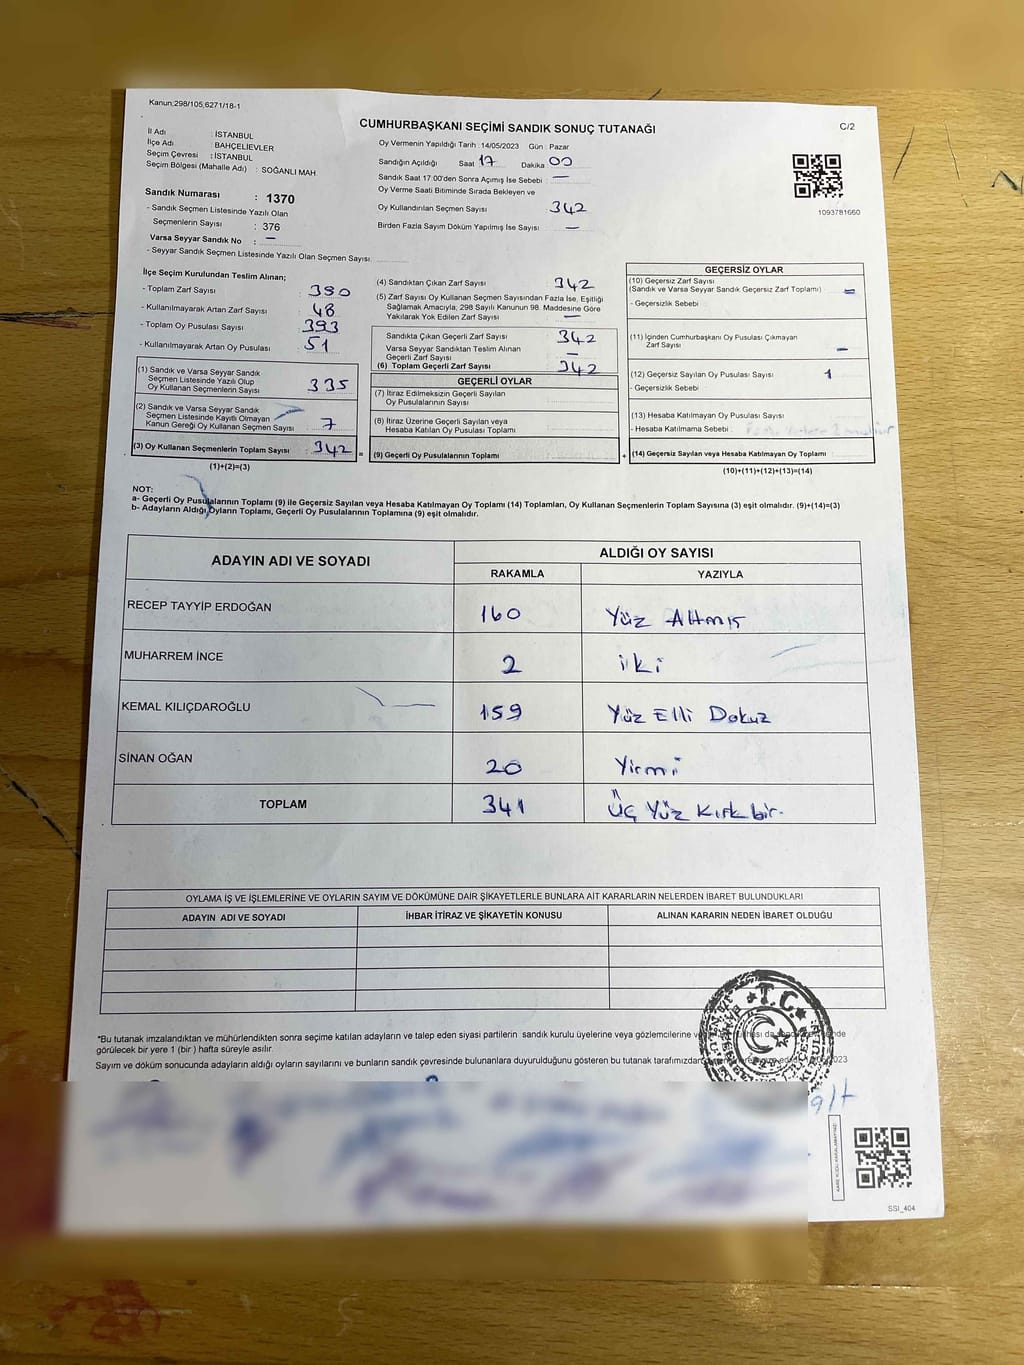 Kanun;298/105;6271/18-1
CUMHURBAŞKANI SEÇİMİ SANDIK SONUÇ TUTANAĞI
C/2
İl Adı : İSTANBUL
İlçe Adı : BAHÇELİEVLER
Seçim Çevresi : İSTANBUL
Seçim Bölgesi (Mahalle Adı) : SOĞANLI MAH.
Sandık Numarası : 1370
- Sandık Seçmen Listesinde Yazılı Olan
Seçmenlerin Sayısı : 376
Varsa Seyyar Sandık No : –
- Seyyar Sandık Seçmen Listesinde Yazılı Olan Seçmen Sayısı:
Oy Vermenin Yapıldığı Tarih :14/05/2023 Gün : Pazar
Sandığın Açıldığı Saat 17 Dakika 00
Sandık Saat 17:00'den Sonra Açımış İse Sebebi : –
Oy Verme Saati Bitiminde Sırada Bekleyen ve
Oy Kullandırılan Seçmen Sayısı 342
Birden Fazla Sayım Döküm Yapılmış İse Sayısı : –
1093781660
İlçe Seçim Kurulundan Teslim Alınan;
- Toplam Zarf Sayısı : 380
- Kullanılmayarak Artan Zarf Sayısı : 48
- Toplam Oy Pusulası Sayısı : 393
- Kullanılmayarak Artan Oy Pusulası : 51
(1) Sandık ve Varsa Seyyar Sandık
Seçmen Listesinde Yazılı Olup
Oy Kullanan Seçmenlerin Sayısı : 335
(2) Sandık ve Varsa Seyyar Sandık
Seçmen Listesinde Kayıtlı Olmayan
Kanun Gereği Oy Kullanan Seçmen Sayısı : 7
(3) Oy Kullanan Seçmenlerin Toplam Sayısı : 342 =
(1)+(2)=(3)
(4) Sandıktan Çıkan Zarf Sayısı : 342
(5) Zarf Sayısı Oy Kullanan Seçmen Sayısından Fazla İse, Eşitliği
Sağlamak Amacıyla; 298 Sayılı Kanunun 98. Maddesine Göre
Yakılarak Yok Edilen Zarf Sayısı : –
Sandıkta Çıkan Geçerli Zarf Sayısı : 342
Varsa Seyyar Sandıktan Teslim Alınan
Geçerli Zarf Sayısı : –
(6) Toplam Geçerli Zarf Sayısı : 342
GEÇERLİ OYLAR
(7) İtiraz Edilmeksizin Geçerli Sayılan
Oy Pusulalarının Sayısı :
(8) İtiraz Üzerine Geçerli Sayılan veya
Hesaba Katılan Oy Pusulası Toplamı :
(9) Geçerli Oy Pusulalarının Toplamı : +
GEÇERSİZ OYLAR
(10) Geçersiz Zarf Sayısı
(Sandık ve Varsa Seyyar Sandık Geçersiz Zarf Toplamı) : –
- Geçersizlik Sebebi :
(11) İçinden Cumhurbaşkanı Oy Pusulası Çıkmayan
Zarf Sayısı : –
(12) Geçersiz Sayılan Oy Pusulası Sayısı : 1
- Geçersizlik Sebebi :
(13) Hesaba Katılmayan Oy Pusulası Sayısı :
- Hesaba Katılmama Sebebi :
(14) Geçersiz Sayılan veya Hesaba Katılmayan Oy Toplamı :
(10)+(11)+(12)+(13)=(14)
NOT:
a- Geçerli Oy Pusulalarının Toplamı (9) ile Geçersiz Sayılan veya Hesaba Katılmayan Oy Toplamı (14) Toplamları, Oy Kullanan Seçmenlerin Toplam Sayısına (3) eşit olmalıdır. (9)+(14)=(3)
b- Adayların Aldığı Oyların Toplamı, Geçerli Oy Pusulalarının Toplamına (9) eşit olmalıdır.
ADAYIN ADI VE SOYADI
ALDIĞI OY SAYISI
RAKAMLA YAZIYLA
RECEP TAYYİP ERDOĞAN 160 Yüz Altmış
MUHARREM İNCE 2 iki
KEMAL KILIÇDAROĞLU 159 Yüz Elli Dokuz
SİNAN OĞAN 20 Yirmi
TOPLAM 341 Üç Yüz Kırk bir.
OYLAMA İŞ VE İŞLEMLERİNE VE OYLARIN SAYIM VE DÖKÜMÜNE DAİR ŞİKAYETLERLE BUNLARA AİT KARARLARIN NELERDEN İBARET BULUNDUKLARI
ADAYIN ADI VE SOYADI İHBAR İTİRAZ VE ŞİKAYETİN KONUSU ALINAN KARARIN NEDEN İBARET OLDUĞU
T.C.
*Bu tutanak imzalandıktan ve mühürlendikten sonra seçime katılan adayların ve talep eden siyasi partilerin sandık kurulu üyelerine veya gözlemcilerine
görülecek bir yere 1 (bir ) hafta süreyle asılır.
Sayım ve döküm sonucunda adayların aldığı oyların sayılarını ve bunların sandık çevresinde bulunanlara duyurulduğunu gösteren bu tutanak tarafımızdan
SSI_404